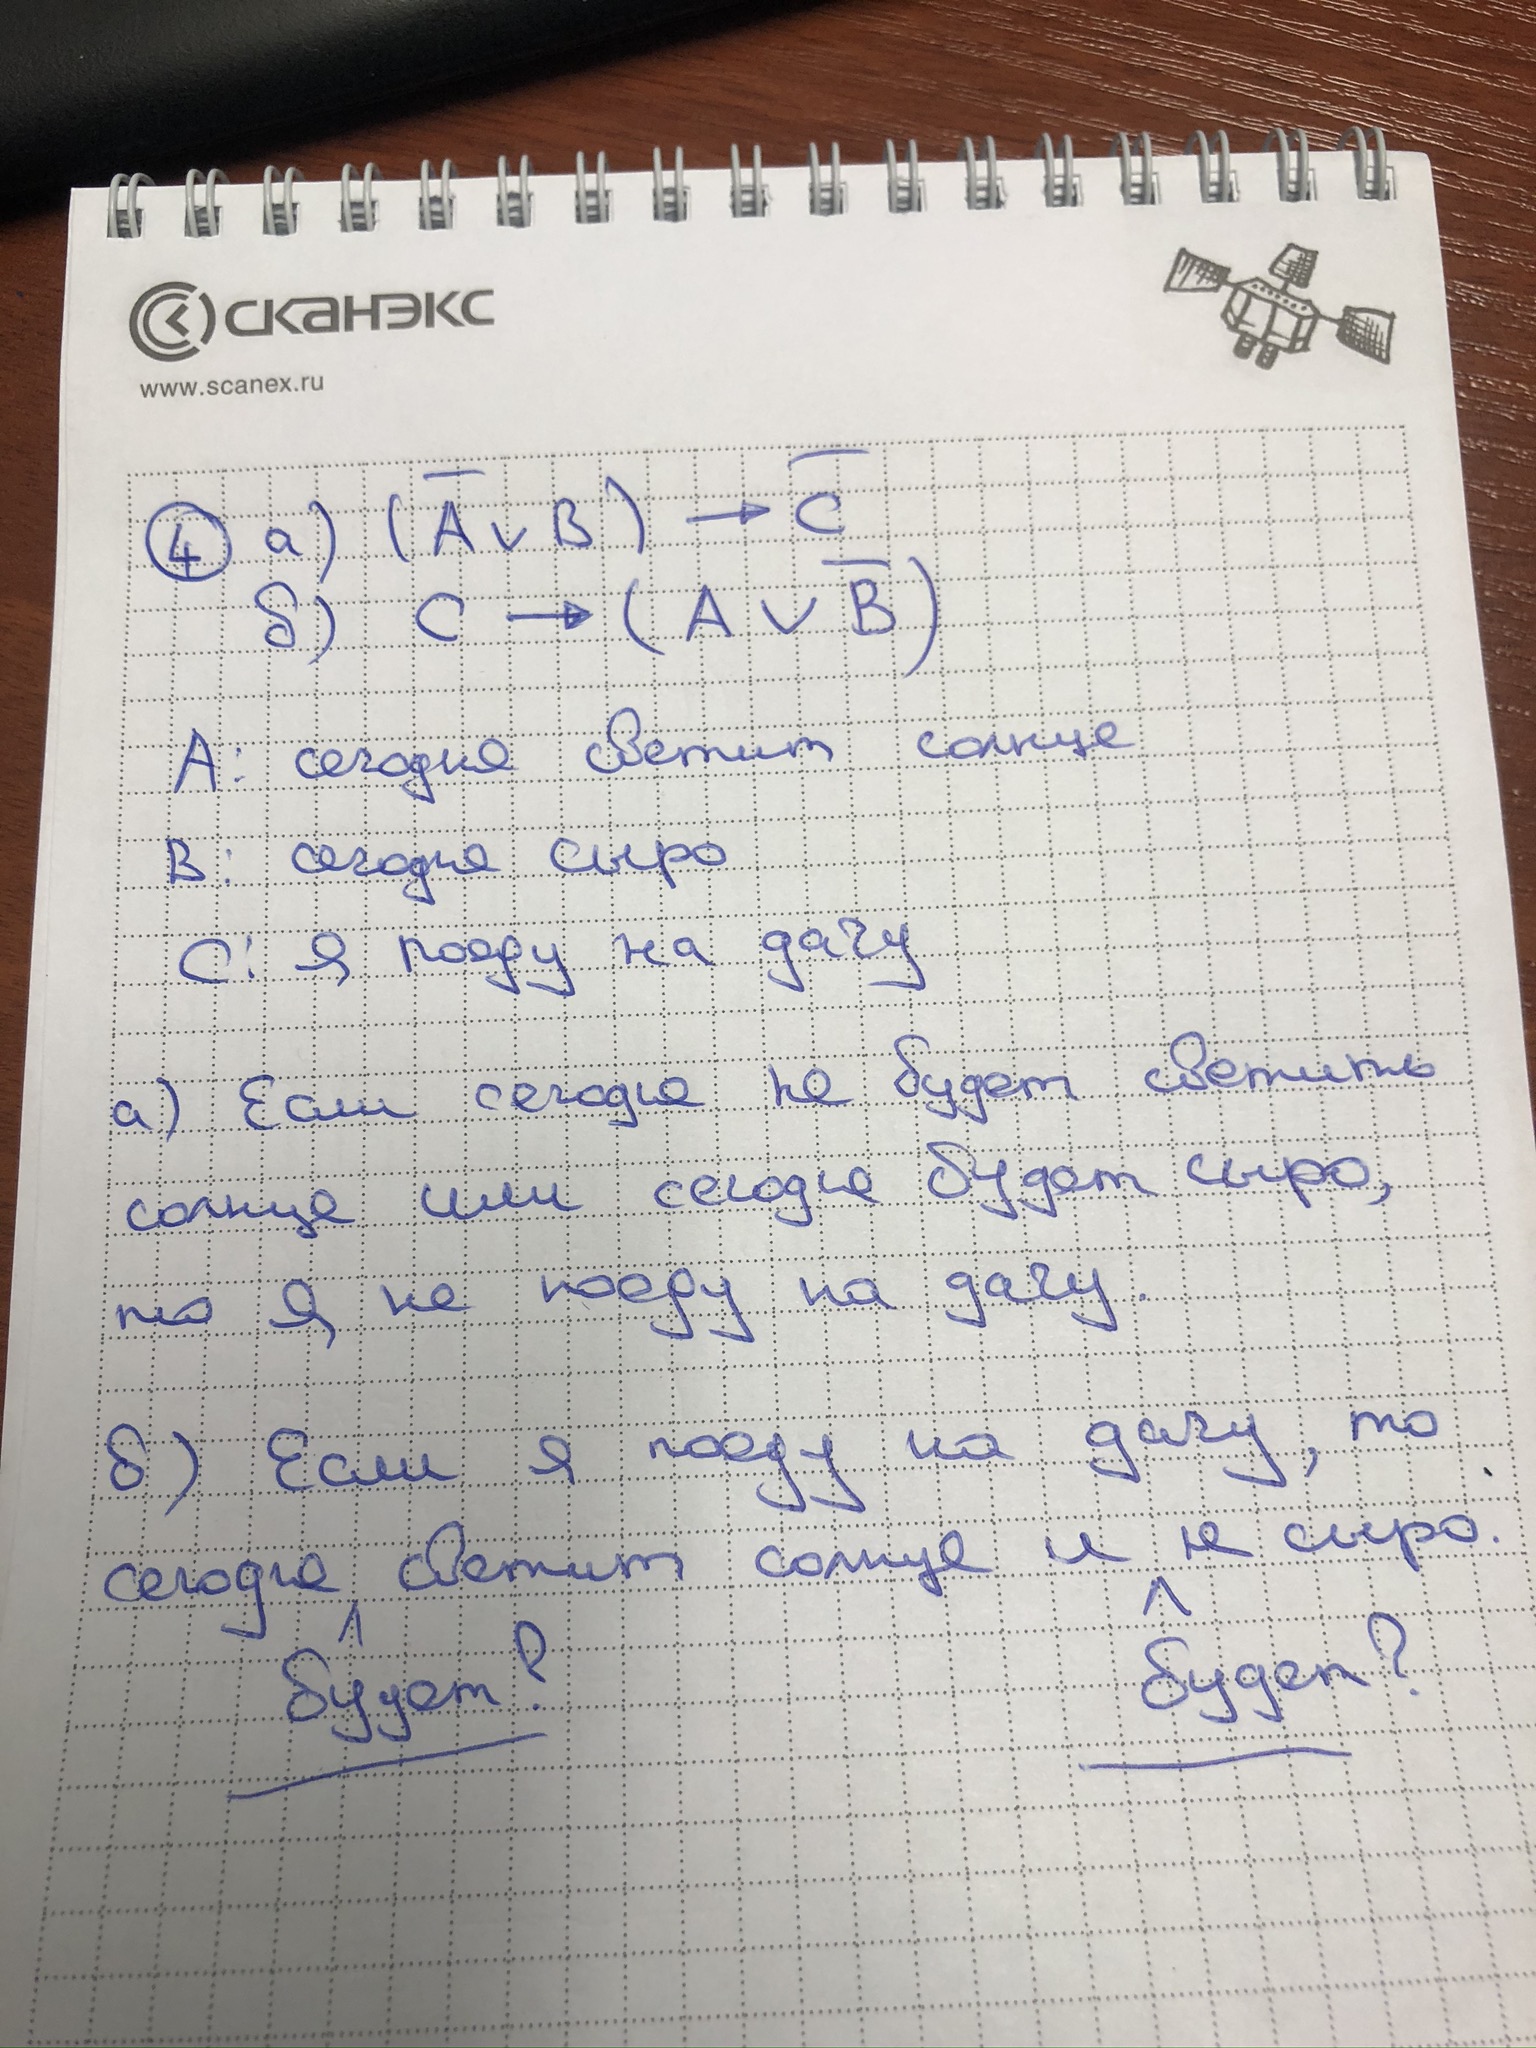 СКАНЭКС
www.scanex.ru
④ а) (A̅ ∨ B) → C̅
б) C → (A ∨ B̅)
A: сегодня светит солнце
B: сегодня сыро
C: я поеду на дачу
а) Если сегодня не будет светить
солнце или сегодня будет сыро,
то я не поеду на дачу.
б) Если я поеду на дачу, то
сегодня светит солнце и не сыро.
^ ^
будет? будет?